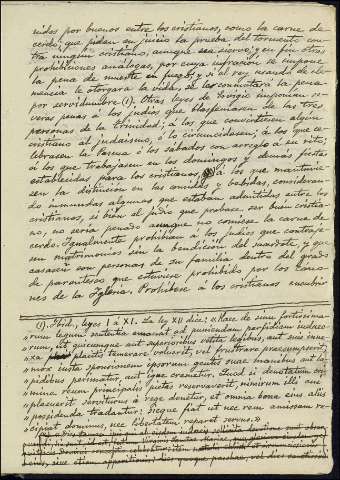 nidos por buenos entre los cristianos, como la carne de
cerdo; que pidan en juicio la prueba del tormento con-
tra ningún cristiano, aunque sea siervo; y en fin otras
prohibiciones análogas, por cuya infracción se impone
la pena de muerte en fuego; y si el rey usando de cle-
mencia le otorgara la vida, se les conmutará la pena
por servidumbre (1). Otras leyes de Ervigio imponían se-
veras penas á los judíos que blasfemasen de las tres
personas de la trinidad; á los que convirtiesen algún
cristiano al judaismo, ó lo circuncidasen; á los que ce-
lebrasen la Pascua ó los sábados con arreglo á su rito;
á los que trabajasen en los domingos y demás fiestas
establecidas para los cristianos, á los que mantuvie-
sen la distinción en las comidas y bebidas, consideran-
do inmundas algunas que estaban admitidas entre los
cristianos, si bien al judío que probase ser buen cristia-
no, no sería penado aunque no comiese la carne de
cerdo. Igualmente prohibían á los judíos que contraje-
sen matrimonios sin la bendición del sacerdote, y que
casasen con personas de su familia dentro del grado
de parentesco que estuviese prohibido por los cáno-
nes de la Iglesia. Prohíbese á los cristianos encubrir
(1). Ibid., leyes I á XI. La ley XII dice: "Haec de sinu fortissima-
"rum legum sententia emanat ad puniendam perfidiam iudaeo-
"rum. Ut quicumque aut superioribus vetita legibus, aut suis inne-
"xa placitis temerare voluerit, vel frustrare praesumpserit,
"mox iuxta sponsionem ipsorum gentis suae manibus aut la-
"pidibus perimatur, aut igne cremetur. Quod si devotatum cri-
"mine reum principalis pietas reservaverit, nimirum illi cui
"placuerit serviturus á rege donetur, et omnia bona eius aliis
"possidenda tradantur: sicque fiat ut nec rem amissam re-
"cipiat dominus, nec libertatem reparet servus."